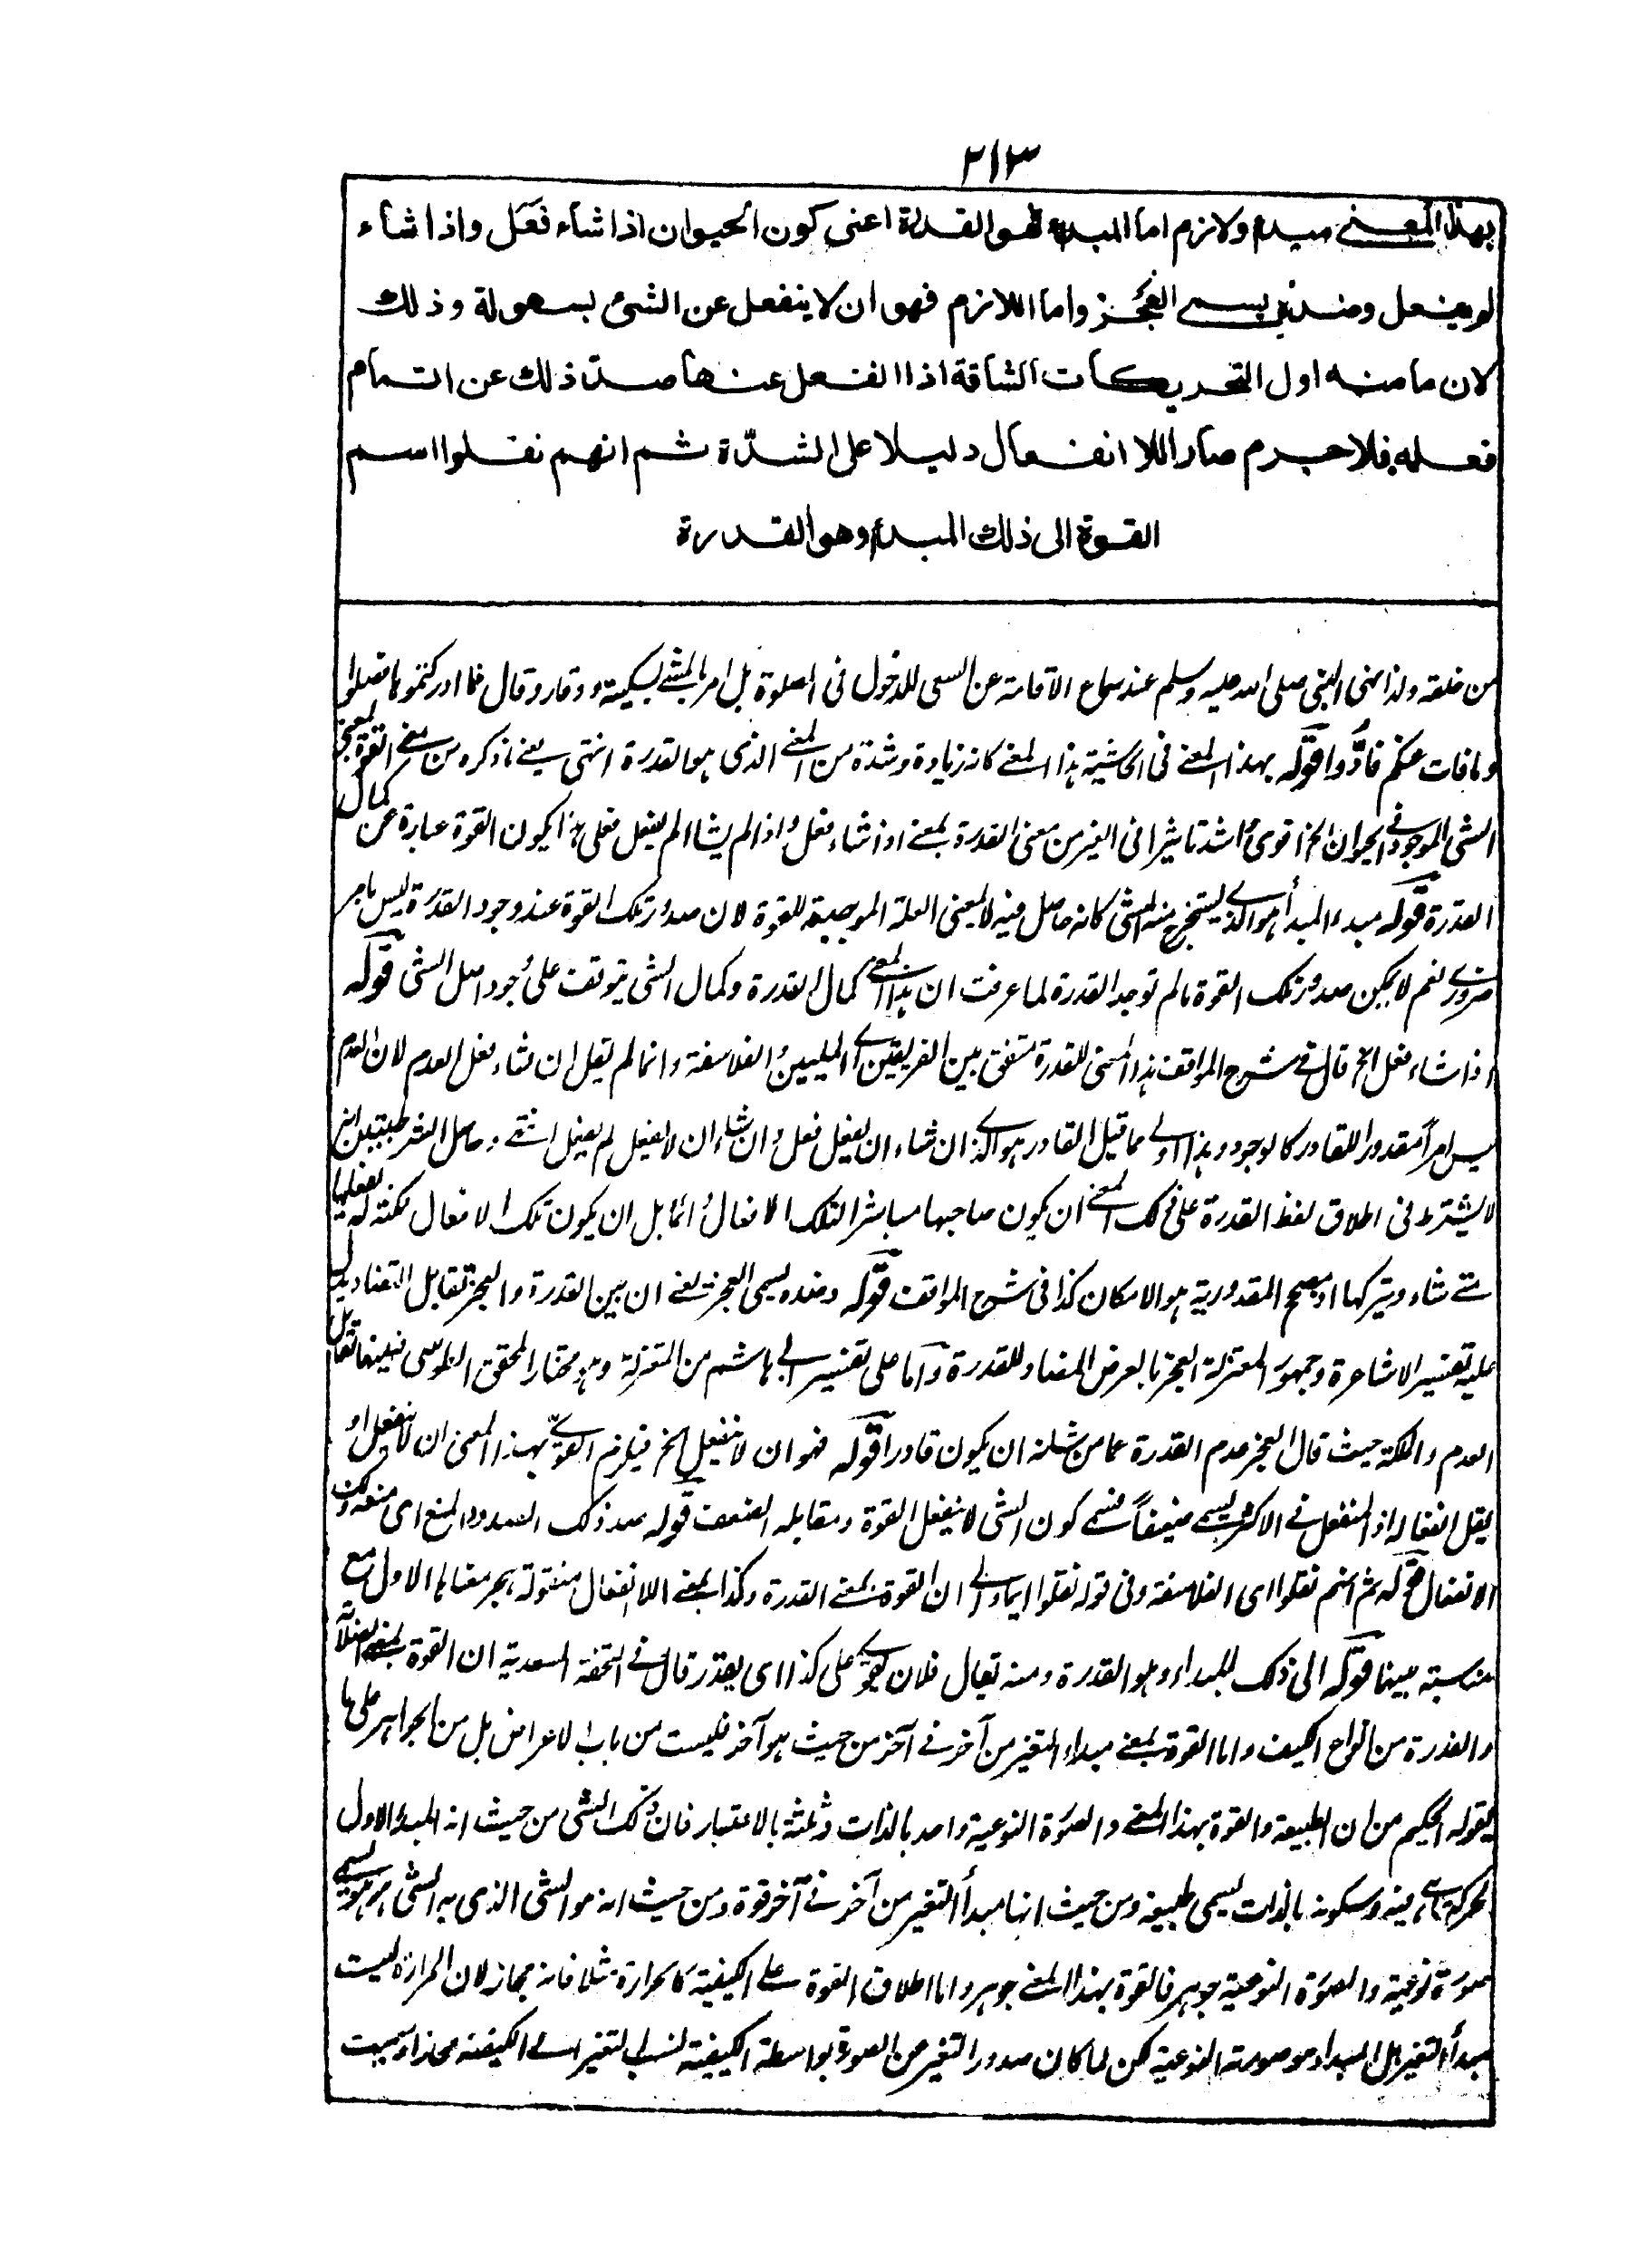 ٢١٣
بهذا المعنى مبدء ولازم اما المبدء فهو القدرة اعنى كون الحيوان اذا شاء فعل واذا شاء
لم يفعل وضدّه يسمى العجز واما اللازم فهو ان لا ينفعل عن الشئ بسهولة وذلك
لان ما منه اول التحريكات الشاقة اذا انفعل عنها صدّ ذلك عن اتمام
فعله فلا جرم صار اللا انفعال دليلا على الشدّة ثم انهم نقلوا اسم
القوة الى ذلك المبدء وهو القدرة
من خلقه ولذا نهى النبى صلى الله عليه وسلم عند سماع الاقامة عن السعى للدخول فى الصلوة بل امر بالمشى بسكينة ووقار وقال فما ادركتمو ها فصلوا
وما فات عنكم فادّوا قوله بهذا المعنى فى الحاشية هذا المعنى كانه زيادة وشدة من المعنى الذى هو القدرة انتهى يعنى ما ذكره من معنى القوة المعنى
الشئ الموجود فى الحيوان الخ اقوى واشد تاثيرا فى الغير من معنى القدرة بمعنى اذا شاء فعل واذا لم يشا لم يفعل فعلى هذا يكون القوة عبارة عن كمال
القدرة قوله مبدء المبدأ هو الذى يستخرج منه الشئ كانه حاصل فيه لا بمعنى العلة الموجبة للقوة لان صدور تلك القوة عند وجود القدرة ليس بامر
ضرورى نعم لا يمكن صدور تلك القوة ما لم توجد القدرة لما عرفت ان هذا المعنى كمال القدرة وكمال الشئ يتوقف على وجود اصل الشئ قوله
اذا شاء فعل الخ قال فى شرح المواقف هذا المعنى للقدرة متفق بين الفريقين اى المليين والفلاسفة وانما لم يقل ان شاء فعل العدم لان العدم
ليس امراً مقدورا للقادر كالوجود وهذا اولى مما قيل القادر هو الذى ان شاء ان يفعل فعل وان شاء ان لا يفعل لم يفعل انتهى وحاصل الشرطيتين انه
لا يشترط فى اطلاق لفظ القدرة على ذلك المعنى ان يكون صاحبها مباشرا لتلك الافعال دائما بل ان يكون تلك الافعال ممكنة له يفعلها
متى شاء ويتركها اذ مصحح المقدورية هو الامكان كذا فى شرح المواقف قوله وضده يسمى العجز يعنى ان بين القدرة والعجز تقابل التضاد يدل
عليه تفسير الاشاعرة وجمهور المعتزلة العجز بالعرض المضاد للقدرة واما على تفسير ابى هاشم من المعتزلة وهو مختار المحقق الطوسى فبينهما تقابل
العدم والملكة حيث قال العجز عدم القدرة عما من شانه ان يكون قادرا قوله فهو ان لا ينفعل الخ فيلزم القوىّ بهذا المعنى ان لا ينفعل او
يقل انفعاله اذ المنفعل فى الاكثر يسمى ضعيفاً فسمى كون الشئ لا ينفعل القوة ومقابله الضعف قوله صد ذلك الصدود المنع اى منعه ذلك
الانفعال قوله ثم انهم نقلوا اى الفلاسفة وفى قوله نقلوا ايماء الى ان القوة بمعنى القدرة وكذا بمعنى اللا انفعال منقولة بهجر معناها الاول مع
مناسبة بينهما قوله الى ذلك المبدء وهو القدرة ومنه يقال فلان يقوى على كذا اى يقدر قال فى التحفة السعدية ان القوة بمعنى
والقدرة من انواع الكيف واما القوة بمعنى مبداء التغير من آخر فى آخر من حيث هو آخر فليست من باب الاعراض بل من الجواهر على ما
يقوله الحكيم من ان الطبيعة والقوة بهذا المعنى والصورة النوعية واحد بالذات وثلثة بالاعتبار فان ذلك الشئ من حيث انه المبدء الاول
لحركة ما هى فيه وسكونه بالذات يسمى طبيعة ومن حيث انها مبدأ التغير من آخر فى آخر قوة ومن حيث انه هو الشئ الذى به الشئ هو هو يسمى
صورة نوعية والصورة النوعية جوهر فالقوة بهذا المعنى جوهر واما اطلاق القوة على الكيفية كالحرارة مثلا فانه مجاز لان الحرارة ليست
مبدأ التغير بل المبداء هو صورته النوعية لكن لما كان صدور التغير من الصورة بواسطة الكيفية نسب التغير الى الكيفية مجازا وسميت